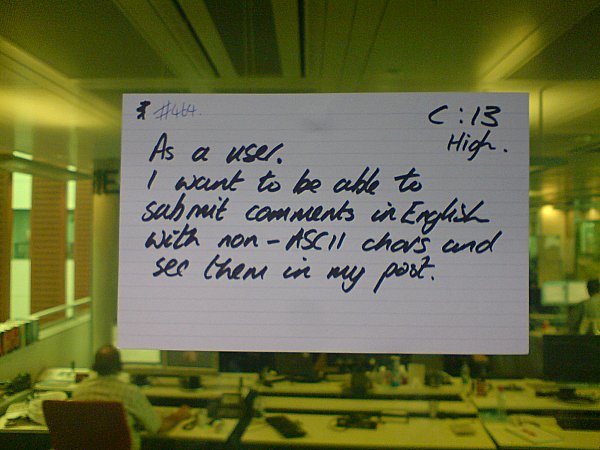 #464.
C:13
High.
As a user.
I want to be able to
submit comments in English
with non-ASCII chars and
see them in my post.